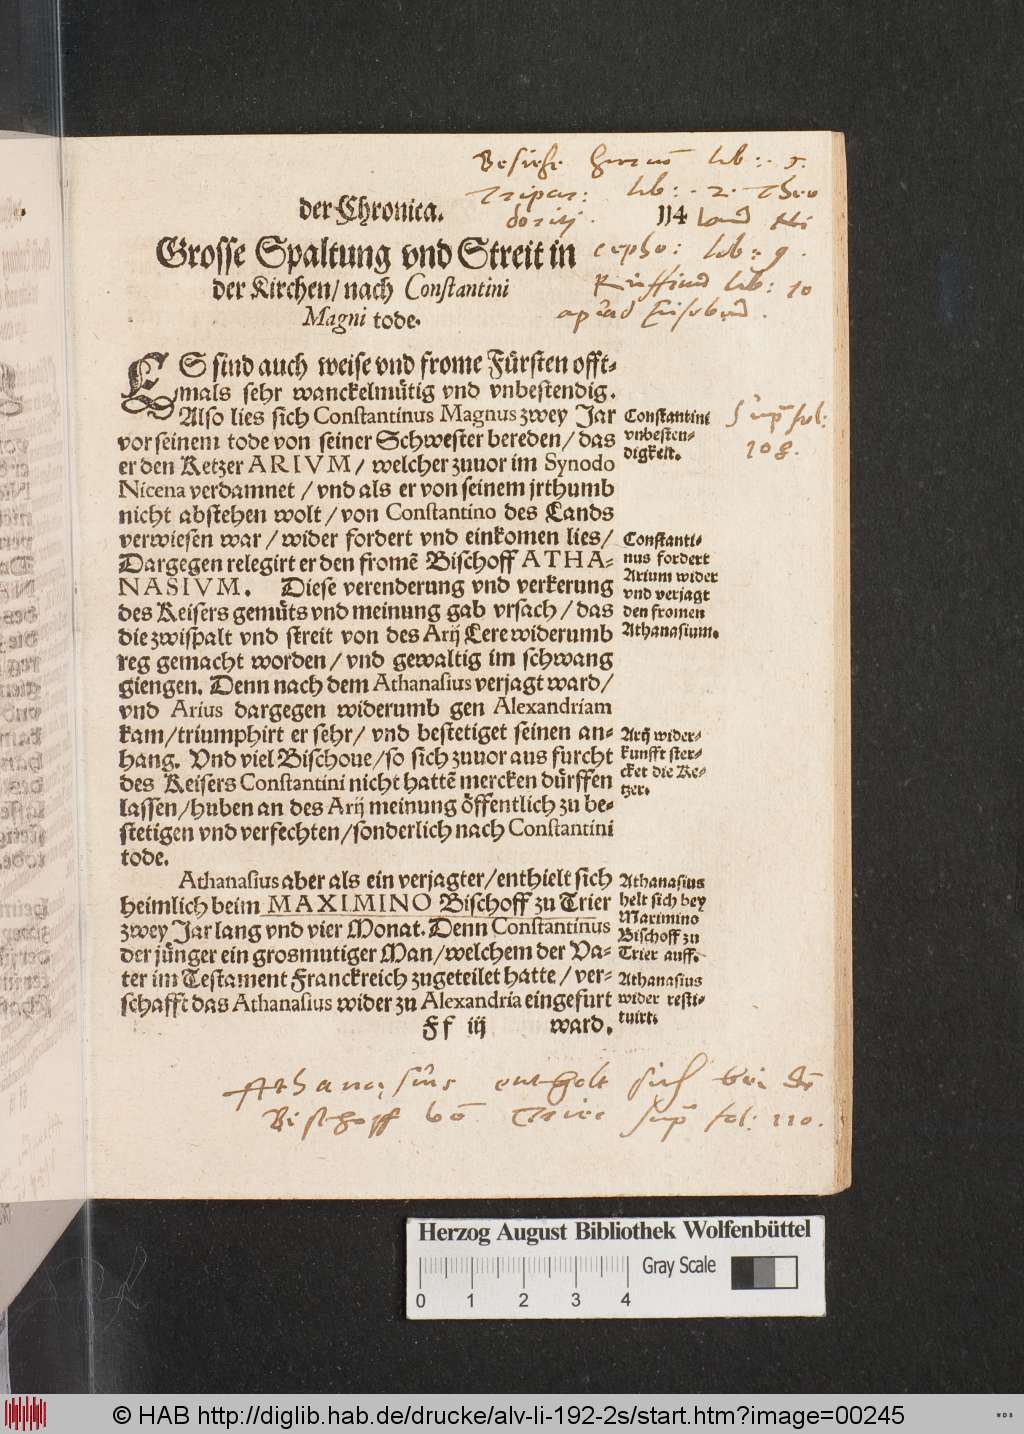 Besiehe hieruon lib: 5.
Tripar: lib: 2. Theo
der Chronica.
doriti. 114
Grosse Spaltung vnd Streit in
cepho: lib: 9.
der Kirchen/ nach Constantini
Ruffinus lib: 10
Magni tode.
apud Eusebium.
ES sind auch weise vnd frome Fürsten offt-
mals sehr wanckelmütig vnd vnbestendig.
Also lies sich Constantinus Magnus zwey Jar
vor seinem tode von seiner Schwester bereden/ das
er den Ketzer ARIVM/ welcher zuuor im Synodo
Nicena verdamnet / vnd als er von seinem jrthumb
nicht abstehen wolt / von Constantino des Lands
verwiesen war / wider fordert vnd einkomen lies/
Dargegen relegirt er den fromẽ Bischoff ATHA-
NASIVM. Diese verenderung vnd verkerung
des Keisers gemüts vnd meinung gab vrsach/ das
die zwispalt vnd streit von des Arij Lere widerumb
reg gemacht worden/ vnd gewaltig im schwang
giengen. Denn nach dem Athanasius verjagt ward/
vnd Arius dargegen widerumb gen Alexandriam
kam/ triumphirt er sehr/ vnd bestetiget seinen an-
hang. Vnd viel Bischoue/ so sich zuuor aus furcht
des Keisers Constantini nicht hattẽ mercken dürffen
lassen/ huben an des Arij meinung öffentlich zu be-
stetigen vnd verfechten/ sonderlich nach Constantini
tode.
Athanasius aber als ein verjagter/ enthielt sich
heimlich beim MAXIMINO Bischoff zu Trier
zwey Jar lang vnd vier Monat. Denn Constantinus
der jünger ein grosmutiger Man/ welchem der Va-
ter im Testament Franckreich zugeteilet hatte / ver-
schafft das Athanasius wider zu Alexandria eingefurt
Ff iij ward.
Constantini
vnbesten-
digkeit.
sup fol:
108.
Constanti-
nus fordert
Arium wider
vnd verjagt
den fromen
Athanasium.
Arij wider-
kunfft ster-
cket die Ke-
tzer.
Athanasius
helt sich bey
Maximino
Bischoff zu
Trier auff.
Athanasius
wider resti-
tuirt.
Athanasius entholt sich bei dẽ
Bischoff võ Trier sup fol: 110.
Herzog August Bibliothek Wolfenbüttel
Gray Scale
0 1 2 3 4
© HAB http://diglib.hab.de/drucke/alv-li-192-2s/start.htm?image=00245